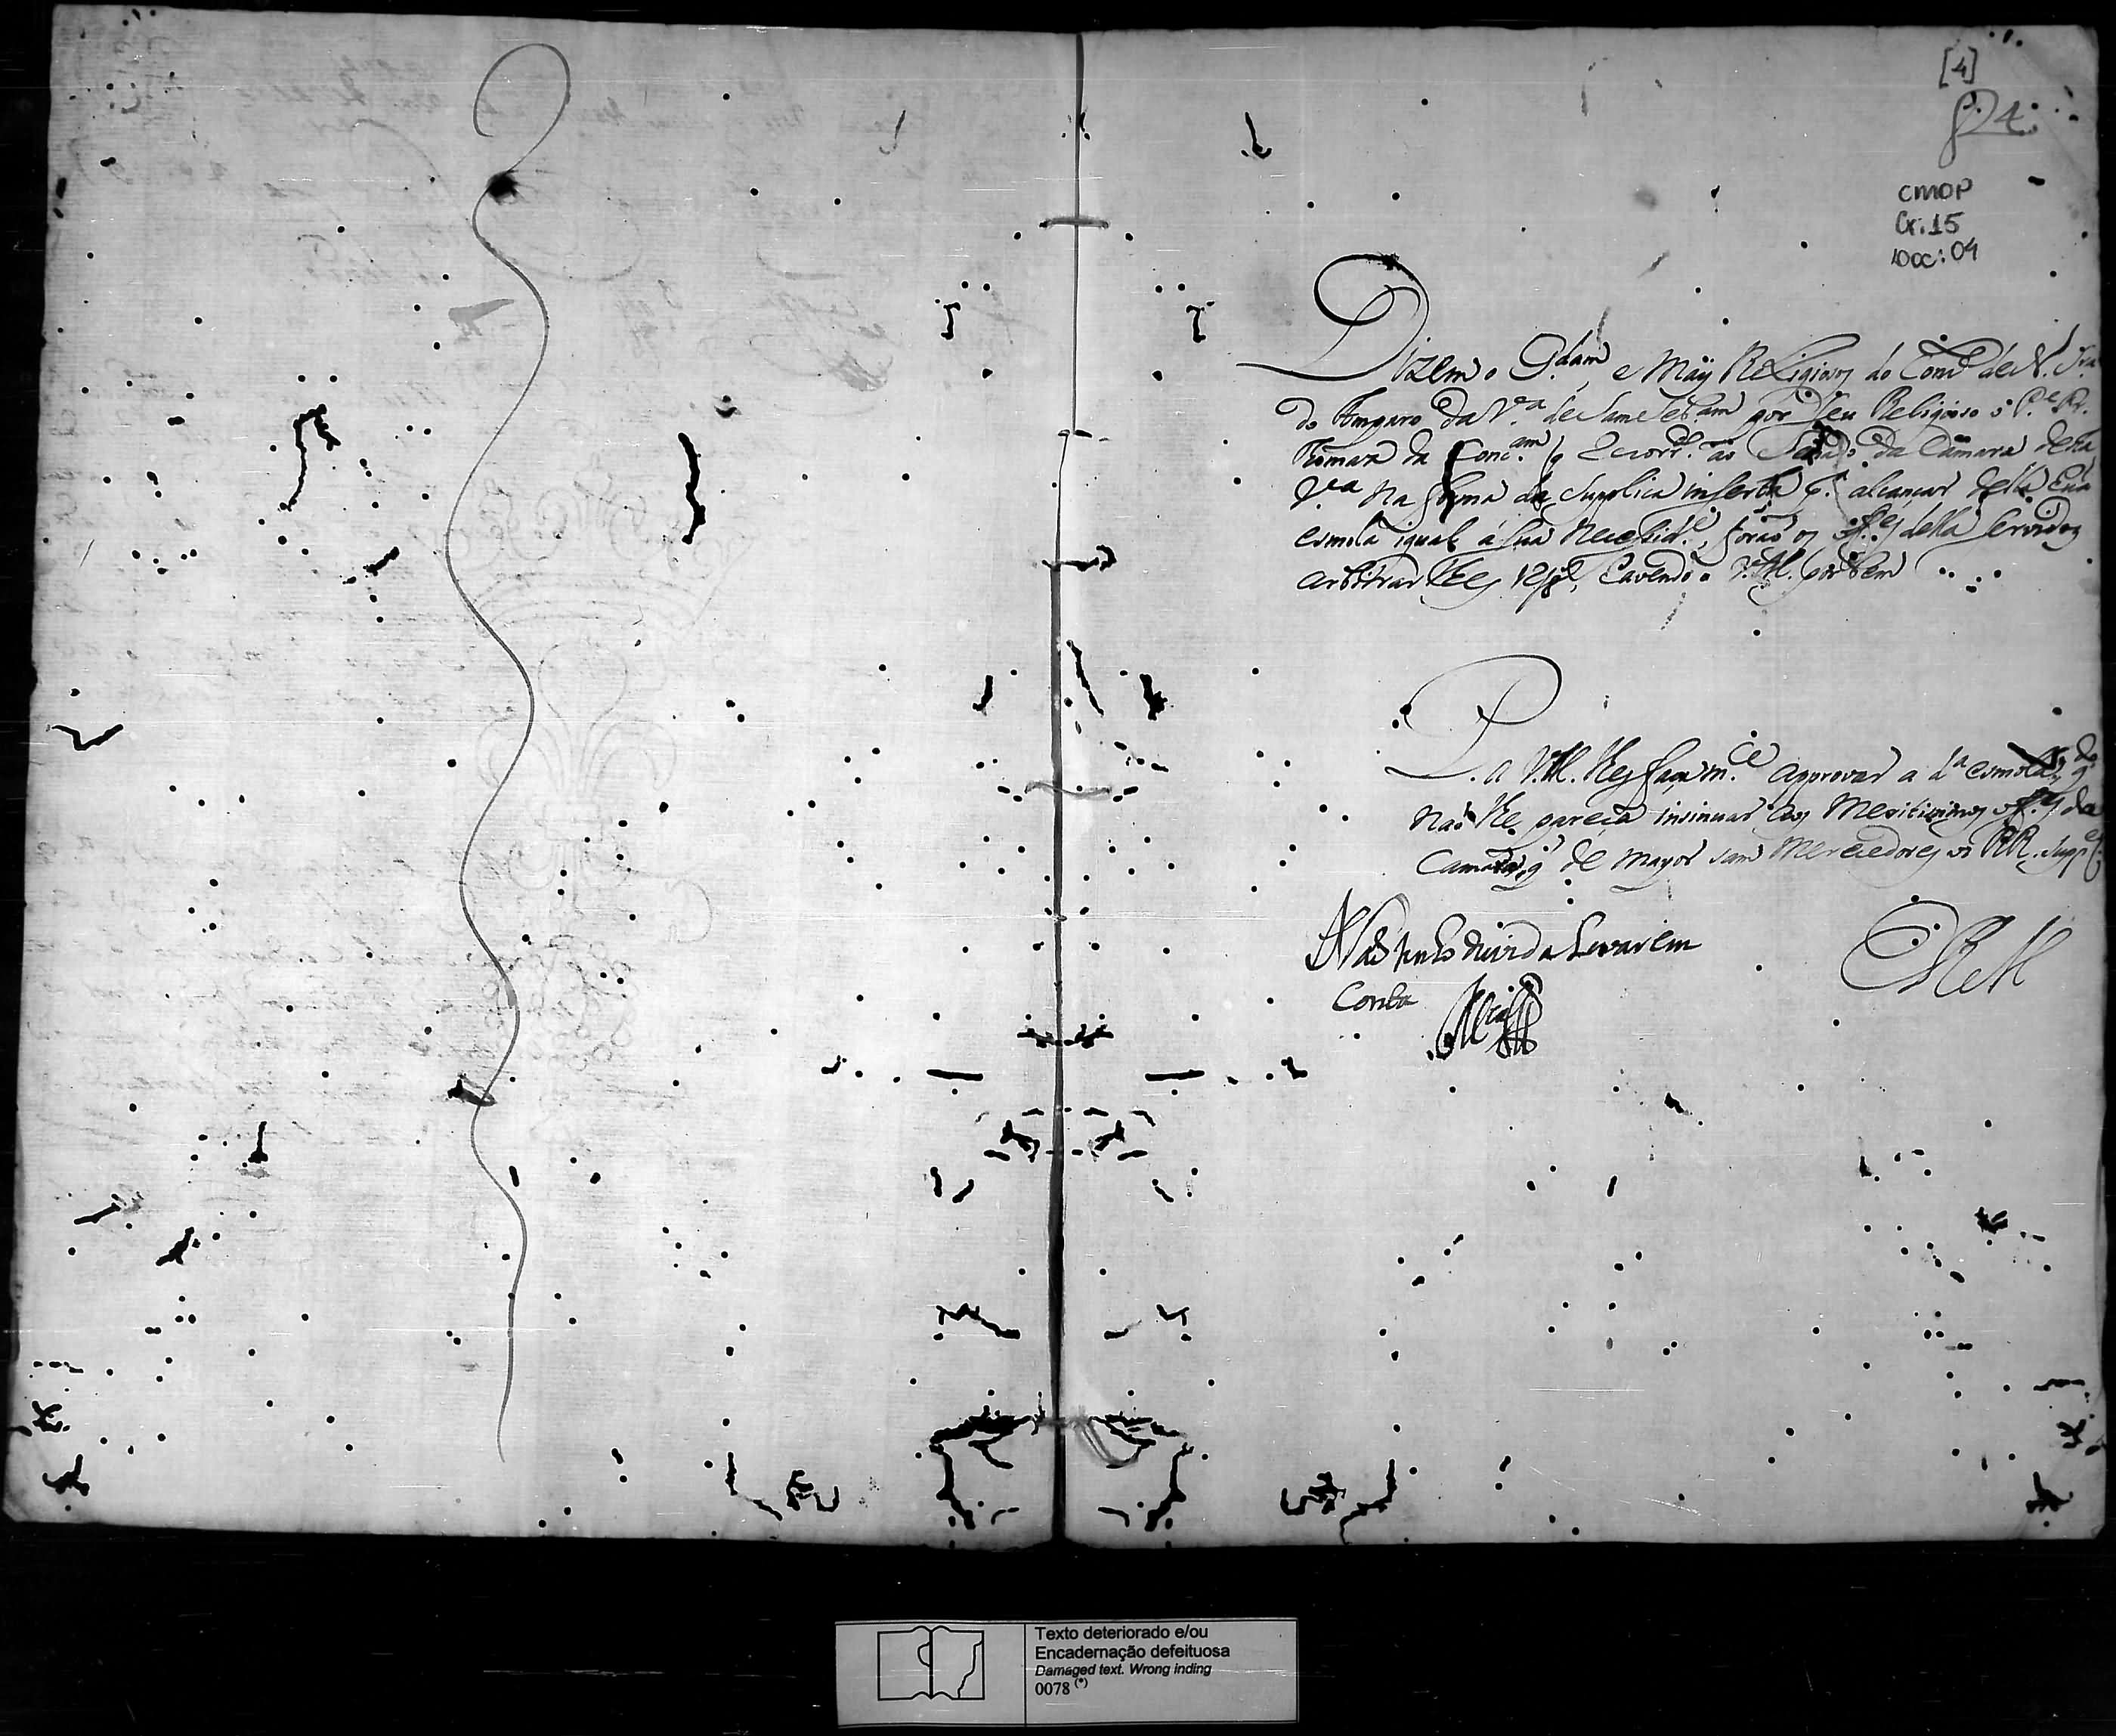 [4]
CMOP
Cx. 15
DOC: 04
Dizem o G.dam, e máy Religiozos do Conv.to de N. Sra
do Amparo da V.a de Sam Sebam por seu Religiozo o P.e Fr.
Thomaz da Conc.am q recorr.do ao Senado da Camara desta
V.a na forma da supplica inserta p.a alcançar della hũa
esmola igual á sua necessid.e, forão os off.es della servidos
arbitrar lhes 12/8.as, havendo o V.M. por bem
P. a V.M. lhes faça m.ce approvar a d.a esmola, q.do
não lhe pareça insinuar aos meritissimos off.es da
Camara, q de mayor sam merecedores os RR. Supp.es
Não tenho duvida Levarem
Conta
E R M
Texto deteriorado e/ou
Encadernação defeituosa
Damaged text. Wrong inding
0078 (*)